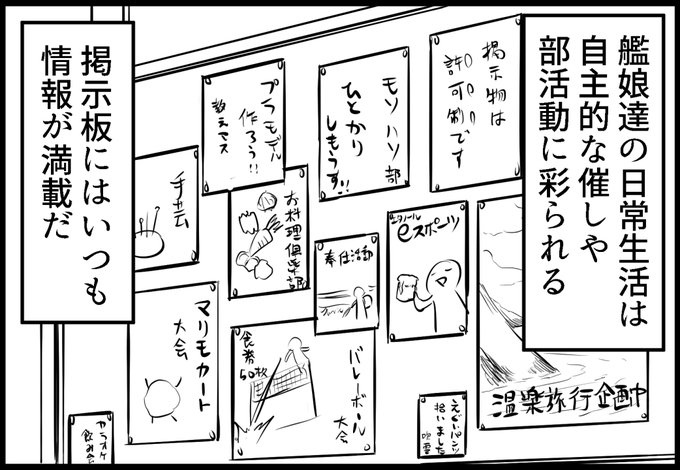 艦娘達の日常生活は
自主的な催しや
部活動に彩られる
掲示板にはいつも
情報が満載だ
掲示物は
許可制です
モソハソ部
ひとかり
しもうす!!
プラモデル
作ろう!!
教えマス
手芸
お料理倶楽部
奉仕活動
エタノール
eスポーツ
温泉旅行企画中
マリモカート
大会
食券
50枚
バレーボール
大会
えぐいパンツ
拾いました
吹雪
カラオケ
飲み会